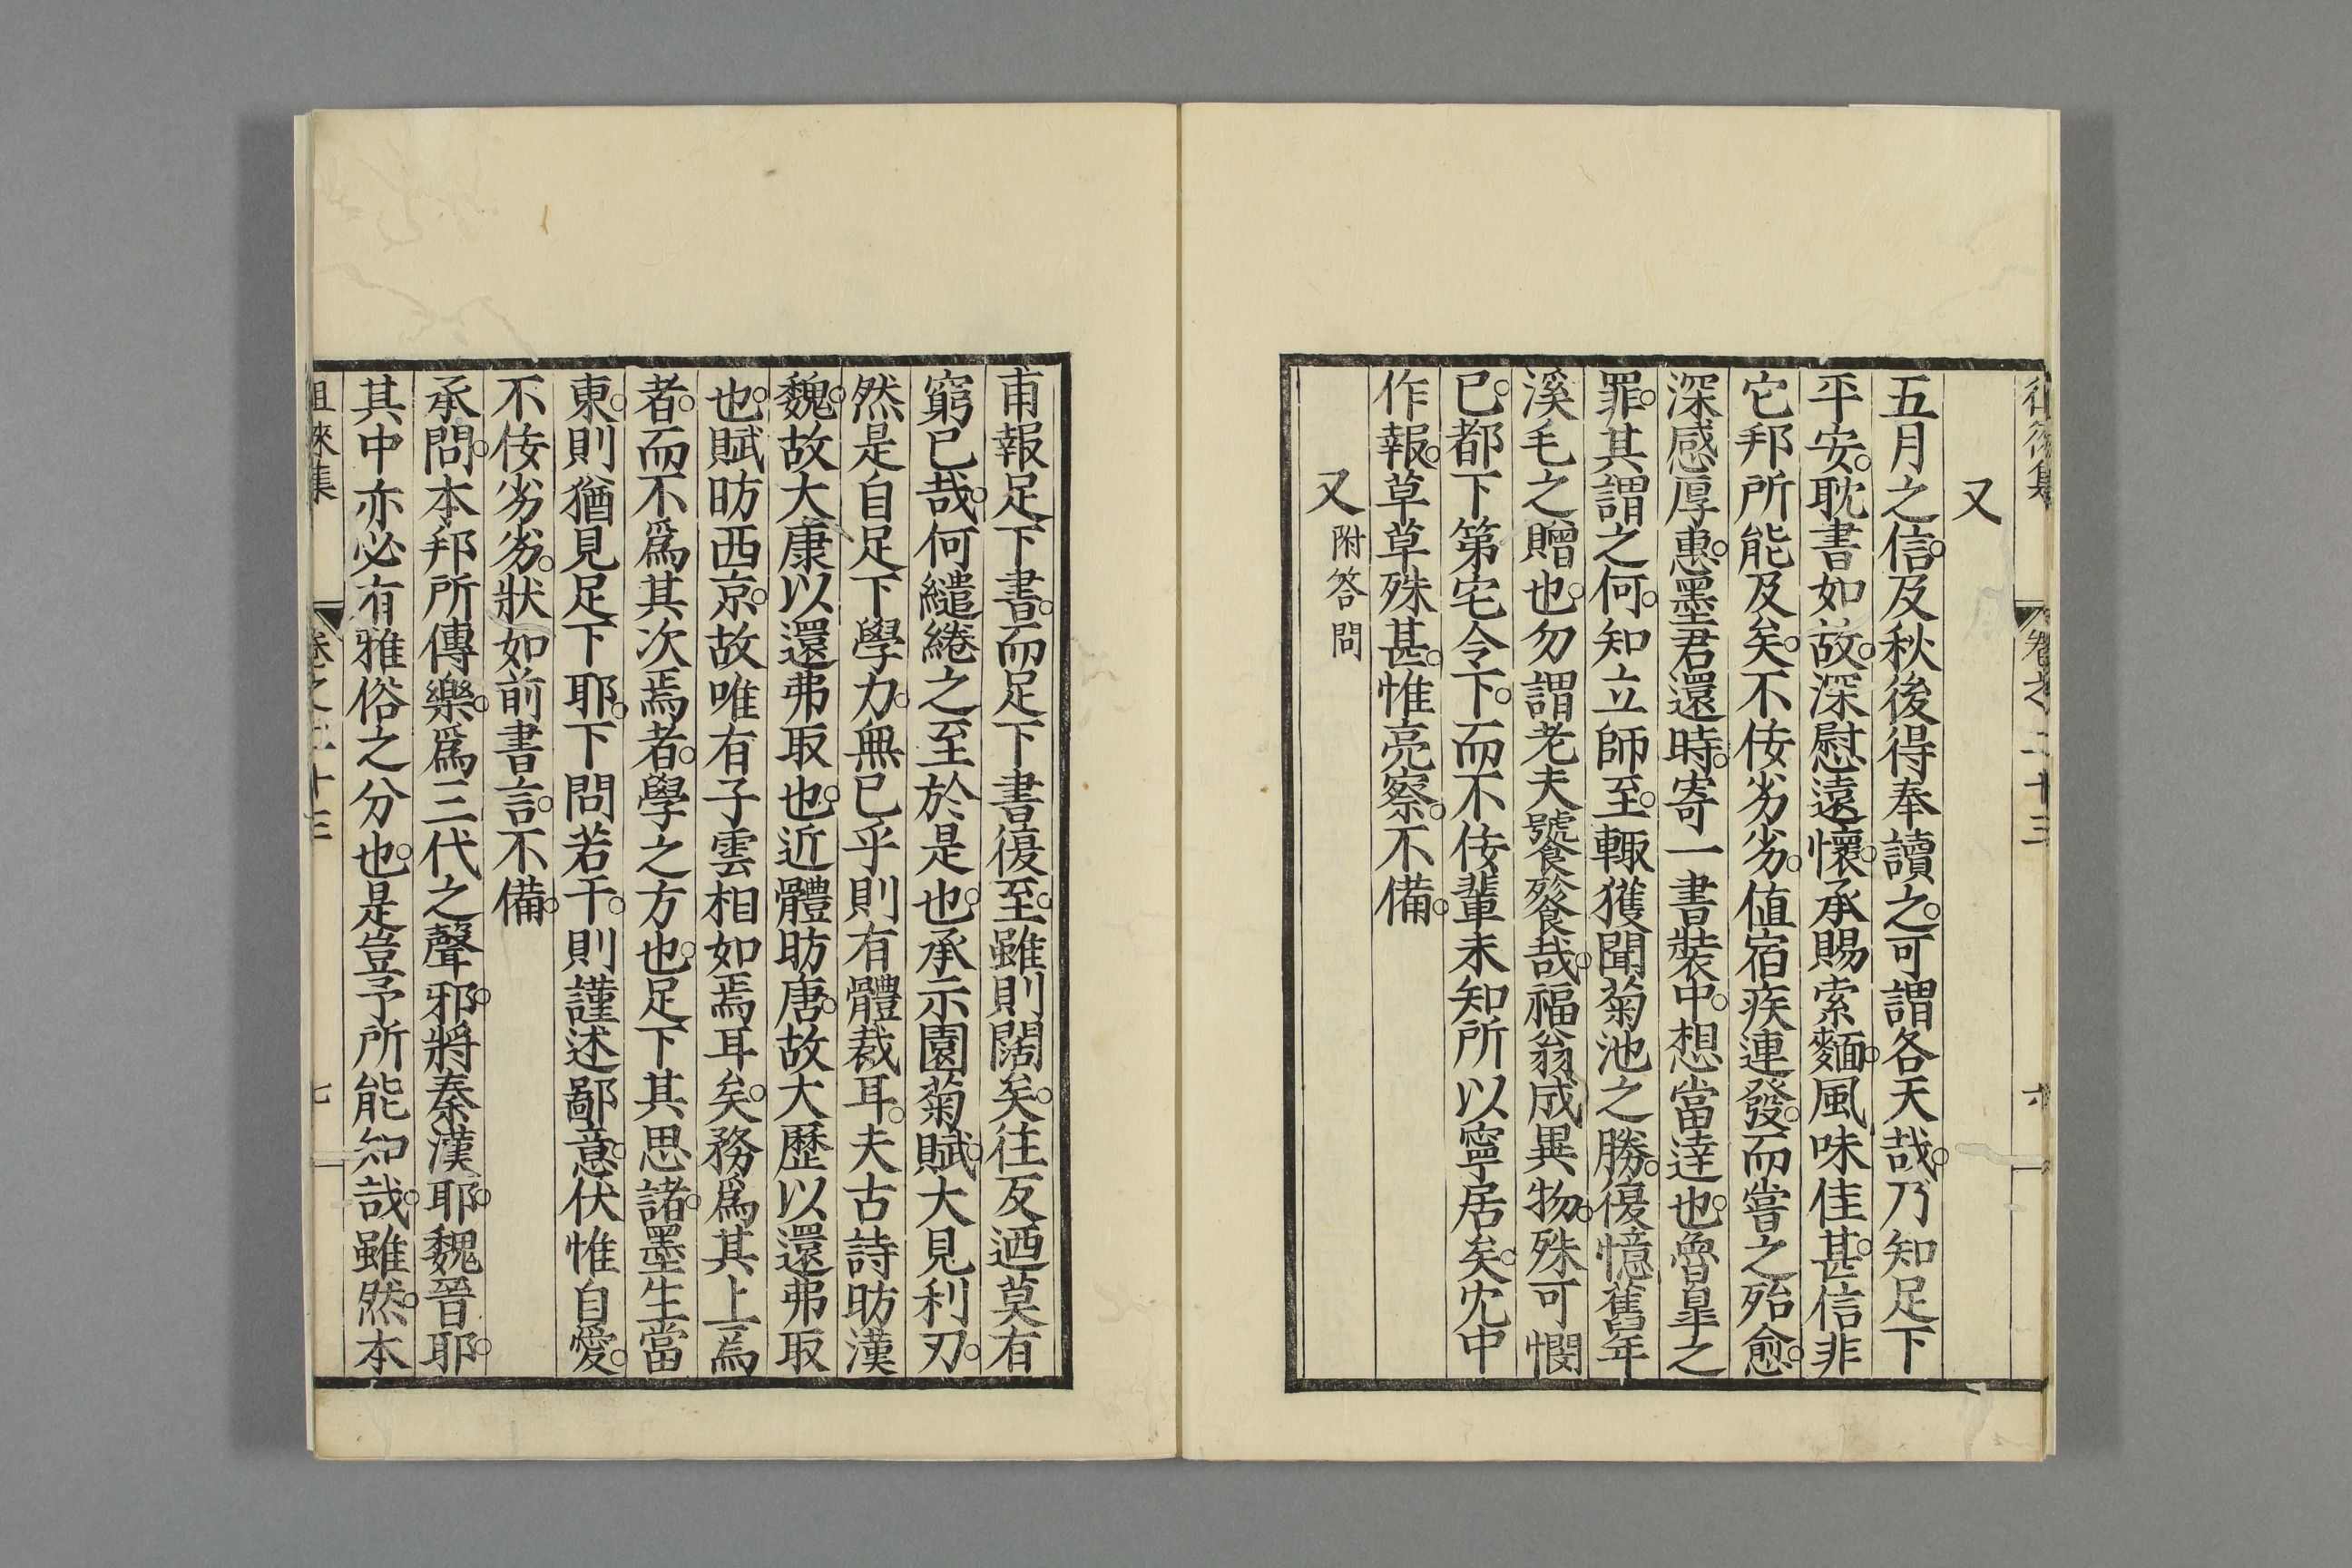 又
五月之信。及秋後得奉讀之。可謂各天哉。乃知足下
平安。耽書如故。深慰遠懷。承賜索麵。風味佳甚。信非
它邦所能及矣。不佞劣劣。值宿疾連發。而嘗之殆愈。
深感厚惠。墨君還時。寄一書裝中。想當達也。魯臯之
罪。其謂之何。知立師至。輙獲聞菊池之勝。復憶舊年
溪毛之贈也。勿謂老夫號食餮哉。福翁成異物。殊可憫
已。都下第宅令下。而不佞輩未知所以寧居矣。冗中
作報。草草殊甚。惟亮察。不備。
又 附答問
甫報足下書。而足下書復至。雖則闊矣。往反迺莫有
窮已哉。何繾綣之至於是也。承示園菊賦。大見利刃。
然是自足下學力。無已乎則有體裁耳。夫古詩昉漢
魏。故大康以還弗取也。近體昉唐。故大歷以還弗取
也。賦昉西京。故唯有子雲相如焉耳矣。務爲其上焉
者。而不爲其次焉者。學之方也。足下其思諸。墨生當
東。則猶見足下耶。下問若干。則謹述鄙意。伏惟自愛。
不佞劣劣。狀如前書言。不備。
承問。本邦所傳樂。爲三代之聲邪。將秦漢耶。魏晉耶。
其中亦必有雅俗之分也。是豈予所能知哉。雖然。本
徂徠集 卷之二十三 七